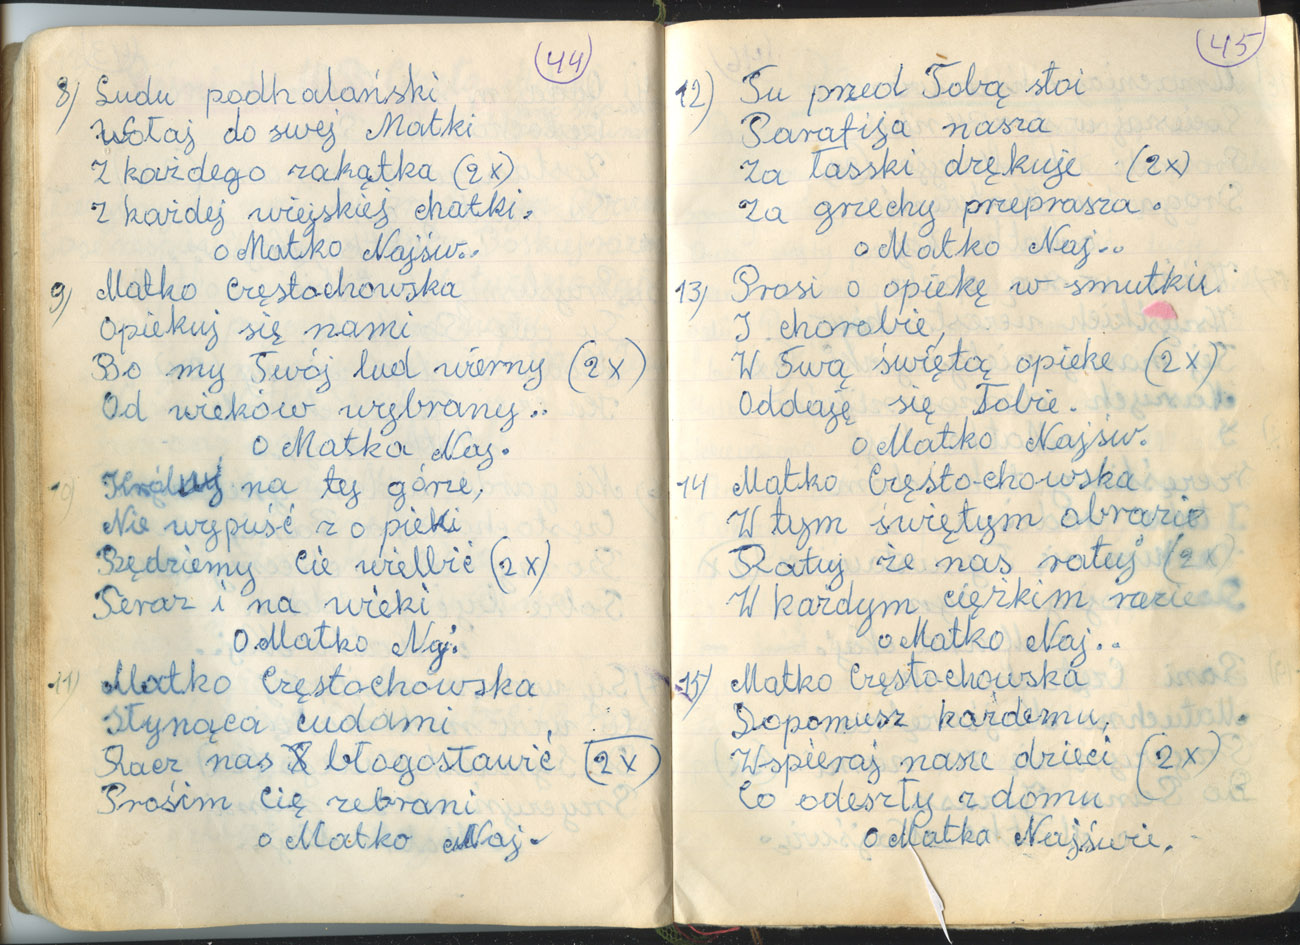 44
8) Ludu podhalański
Wołaj do swej Matki
Z każdego zakątka (2x)
Z każdej wiejskiej chatki.
o Matko Najśw..
9) Matko Częstochowska
Opiekuj się nami
Bo my Twój lud wierny (2x)
Od wieków wybrany..
o Matka Naj.
10) Króluj na tej górze,
Nie wypuść z opieki
Będziemy Cie wielbić (2x)
Teraz i na wieki
O Matko Naj.
11) Matko Częstochowska
Słynąca cudami
Racz nas błogosławić (2x)
Prośim Cię zebrani
o Matko Naj.
45
12) Tu przed Tobą stoi
Parafija nasza
Za łasski dzękuje (2x)
Za grzechy przeprasza.
o Matko Naj..
13) Prosi o opiekę w smutku
I chorobie,
W Twą świętą opieke (2x)
Oddaję się Tobie.
o Matko Najsw.
14 Matko Często-chowska
W tym świętym obrazie
Ratuj że nas ratuj (2x)
W każdym ciężkim razie
o Matko Naj..
15) Matko Częstochowska
Dopomusz każdemu,
Wspieraj nasze dzieci (2x)
Co odeszły z domu
o Matka Najświ.